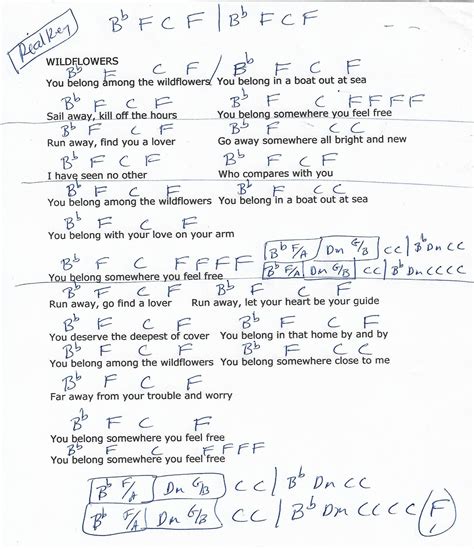 Real Key
B♭ F C F | B♭ F C F
WILDFLOWERS
B♭ F C F / B♭ F C F
You belong among the wildflowers You belong in a boat out at sea
B♭ F C F B♭ F C F F F F
Sail away, kill off the hours You belong somewhere you feel free
B♭ F C F B♭ F C C
Run away, find you a lover Go away somewhere all bright and new
B♭ F C F B♭ F C F
I have seen no other Who compares with you
B♭ F C F B♭ F C C
You belong among the wildflowers You belong in a boat out at sea
B♭ F C F
You belong with your love on your arm
B♭ F/A / Dm G/B CC | B♭ Dm CC
B♭ F C F F F F
You belong somewhere you feel free
B♭ F/A | Dm G/B | CC | B♭ Dm CCCC
B♭ F C F B♭ F C F
Run away, go find a lover Run away, let your heart be your guide
B♭ F C F B♭ F C F
You deserve the deepest of cover You belong in that home by and by
B♭ F C F B♭ F C F
You belong among the wildflowers You belong somewhere close to me
B♭ F C F
Far away from your trouble and worry
B♭ F C F
You belong somewhere you feel free
B♭ F C F F F F
You belong somewhere you feel free
B♭ F/A | Dm G/B | CC | B♭ Dm CC
B♭ F/A | Dm G/B CC | B♭ Dm CCCC (F)